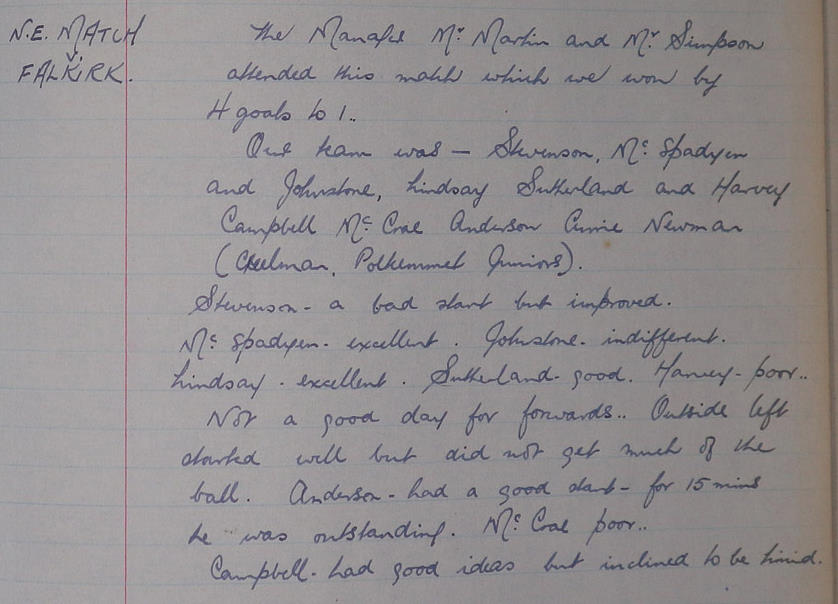 N.E. MATCH
v.
FALKIRK.
The Manager Mr Martin and Mr Simpson
attended this match which we won by
4 goals to 1..
Our team was — Stevenson, Mc Spadyen
and Johnstone, Lindsay Sutherland and Harvey
Campbell Mc Crae Anderson Currie Newman
(Polkemmet Juniors).
Stevenson - a bad start but improved.
Mc Spadyen - excellent. Johnstone - indifferent.
Lindsay - excellent. Sutherland - good. Harvey - poor..
Not a good day for forwards.. Outside left
started well but did not get much of the
ball. Anderson - had a good start - for 15 mins
he was outstanding. Mc Crae poor..
Campbell - had good ideas but inclined to be timid.